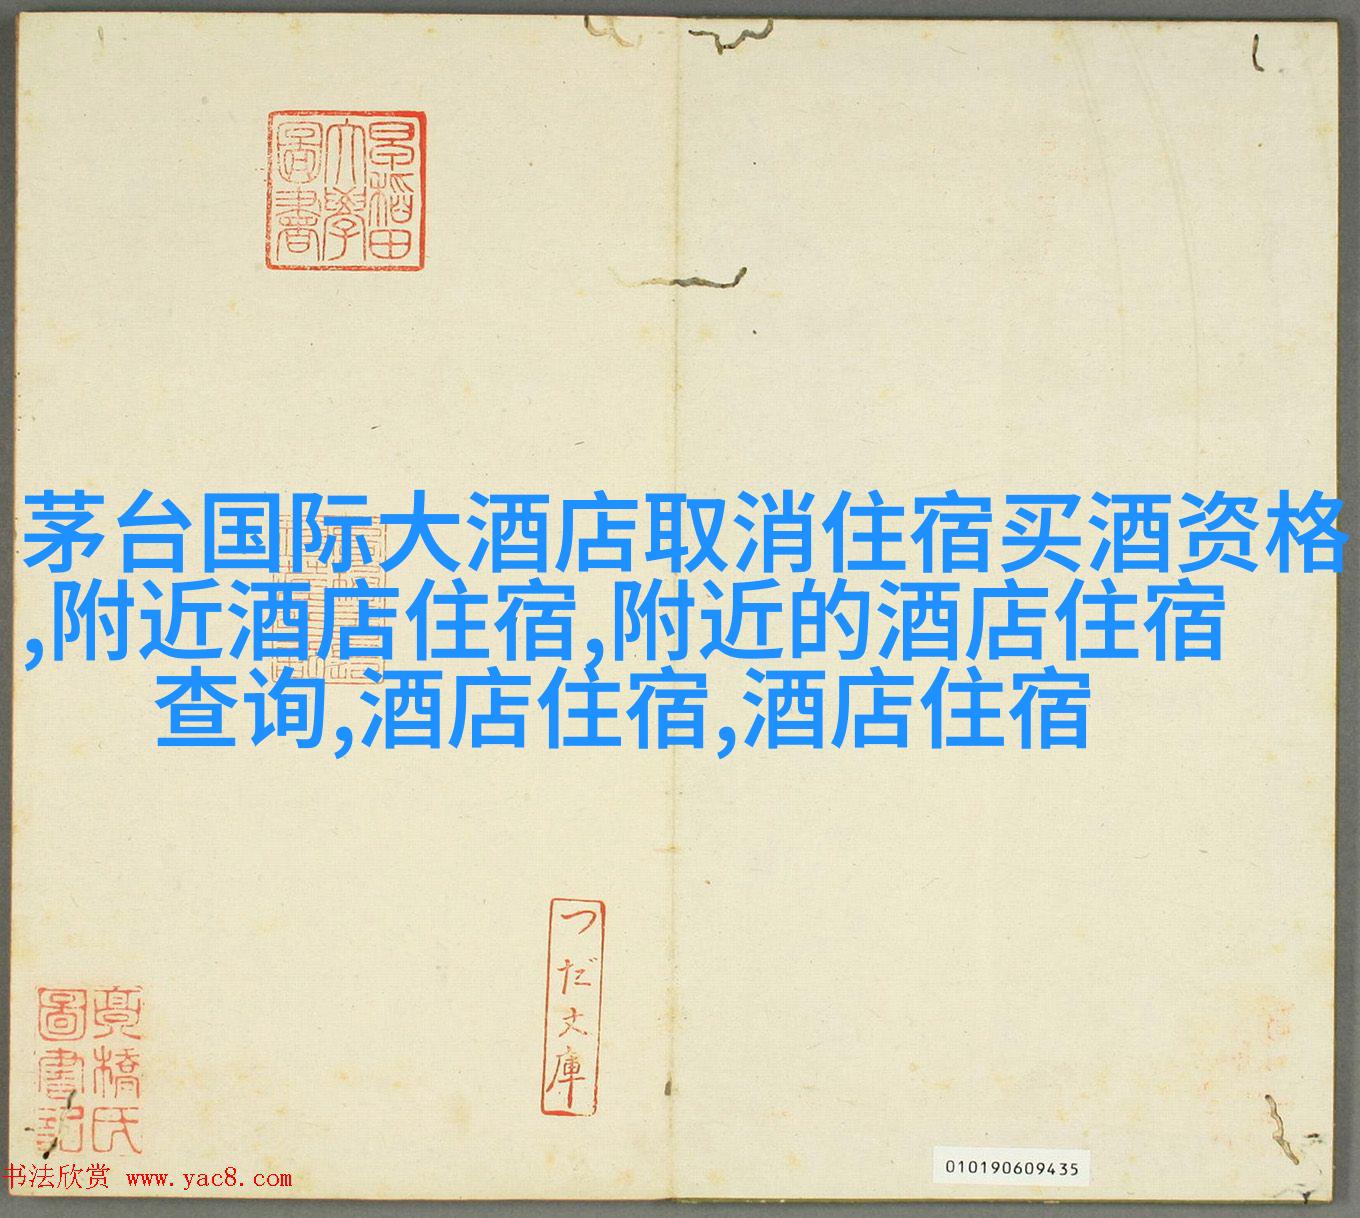 早稻田
大學
圖書
茅台国际大酒店取消住宿买酒资格
,附近酒店住宿,附近的酒店住宿
查询,酒店住宿,酒店住宿
つだ文庫
圖書記
書法欣赏 www.yac8.com
010190609435